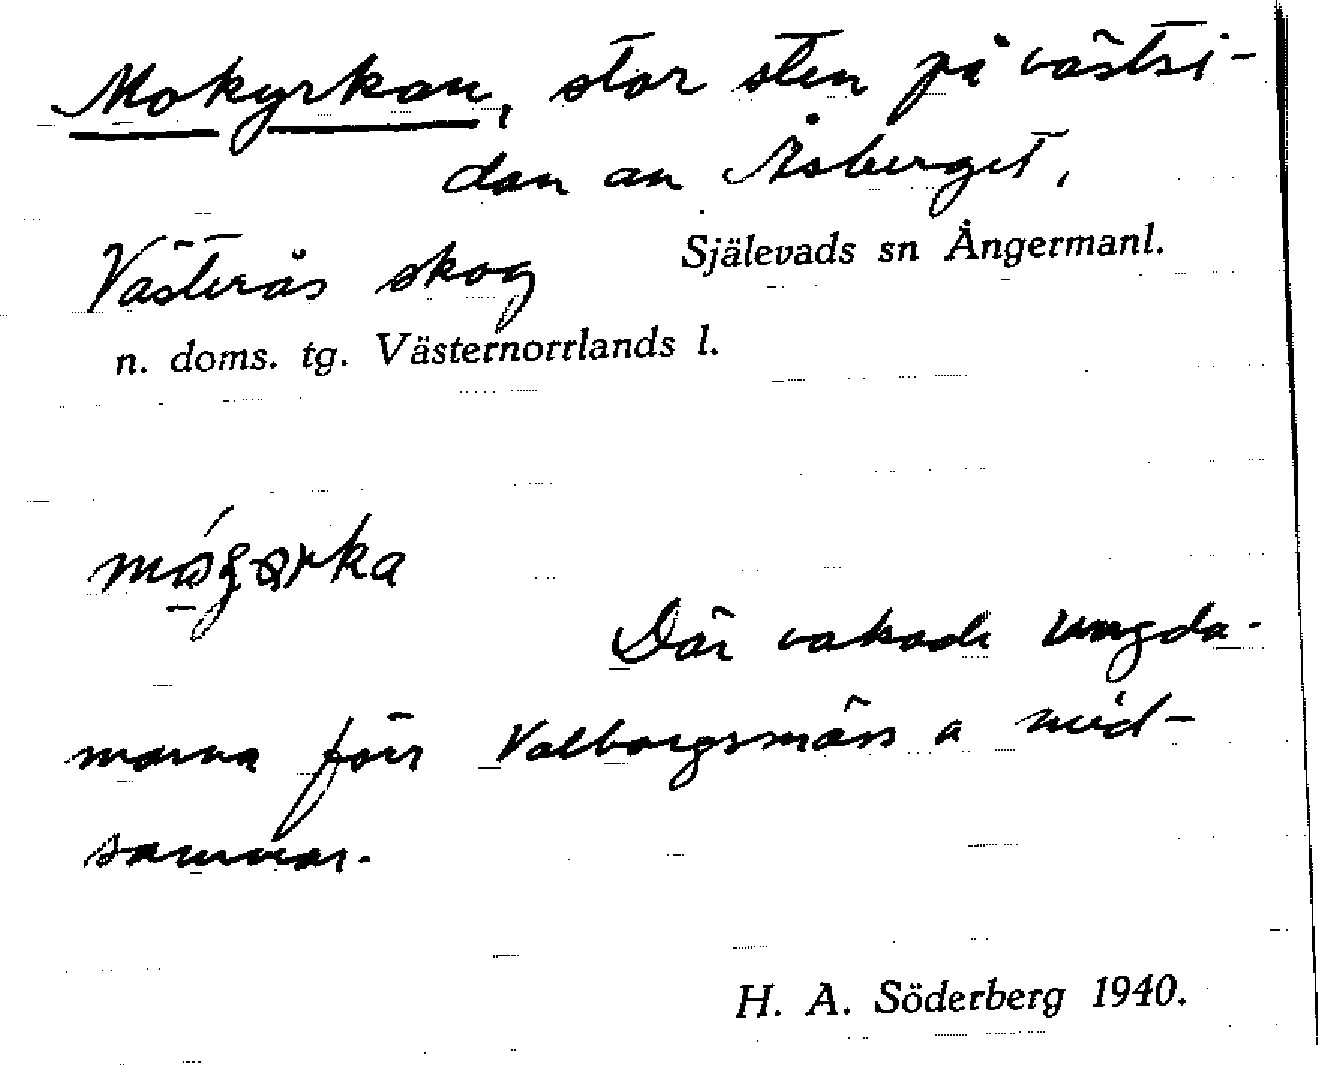 Mokyrkan, stor sten på västsi-
dan av Åsberget,
Västerås skog Själevads sn Ångermanl.
n. doms. tg. Västernorrlands l.
Där vakade ungdo-
marna förr Valborgsmäss o mid-
sommar.
H. A. Söderberg 1940.